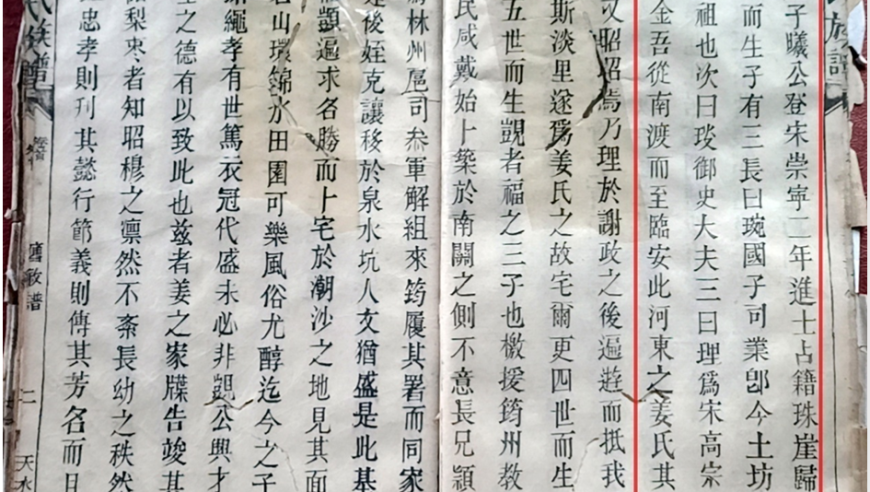 子曦公登宋崇寧二年進士占籍珠崖歸
而生子有三長曰琬國子司業卽今土坊
祖也次曰琰御史大夫三曰理爲宋高宗
金吾從南渡而至臨安此河東之姜氏其
又昭昭焉乃理於謝政之後遍遊而抵我
斯淡里遂爲姜氏之故宅爾更四世而生
五世而生覬者福之三子也檄援筠州教
民咸戴始卜築於南關之側不意長兄顥
林州扈司叅軍解組來筠履其署而同家
後姪克讓移於泉水坑人文猶盛是此基
顗遍求名勝而卜宅於潮沙之地見其面
山環錦水田園可樂風俗尤醇迄今之子
繩孝有世篤衣冠代盛未必非覬公興才
之德有以致此也兹者姜之家牒告竣其
梨枣者知昭穆之凛然不紊長幼之秩然
忠孝則刊其懿行節義則傳其芳名而曰
氏族譜
舊敘譜
二
天水
族譜